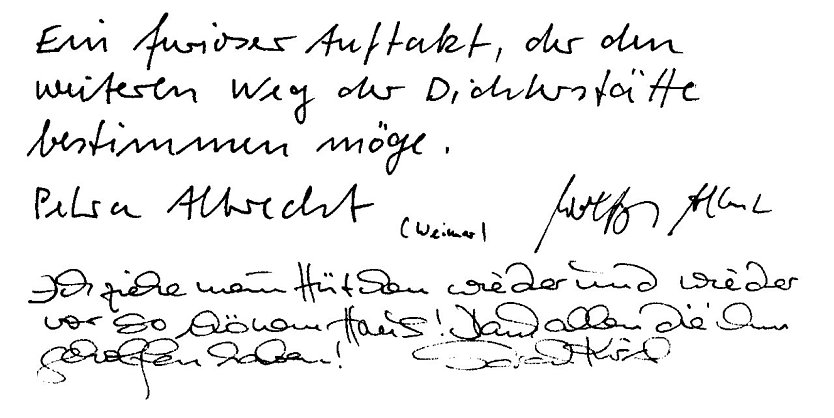 Ein furioser Auftakt, der den
weiteren Weg der Dichterstätte
bestimmen möge.
Petra Albrecht (Weimar)
Ich ziehe mein Hütchen wieder und wieder
vor so Haus! Dank allen die
geholfen haben!